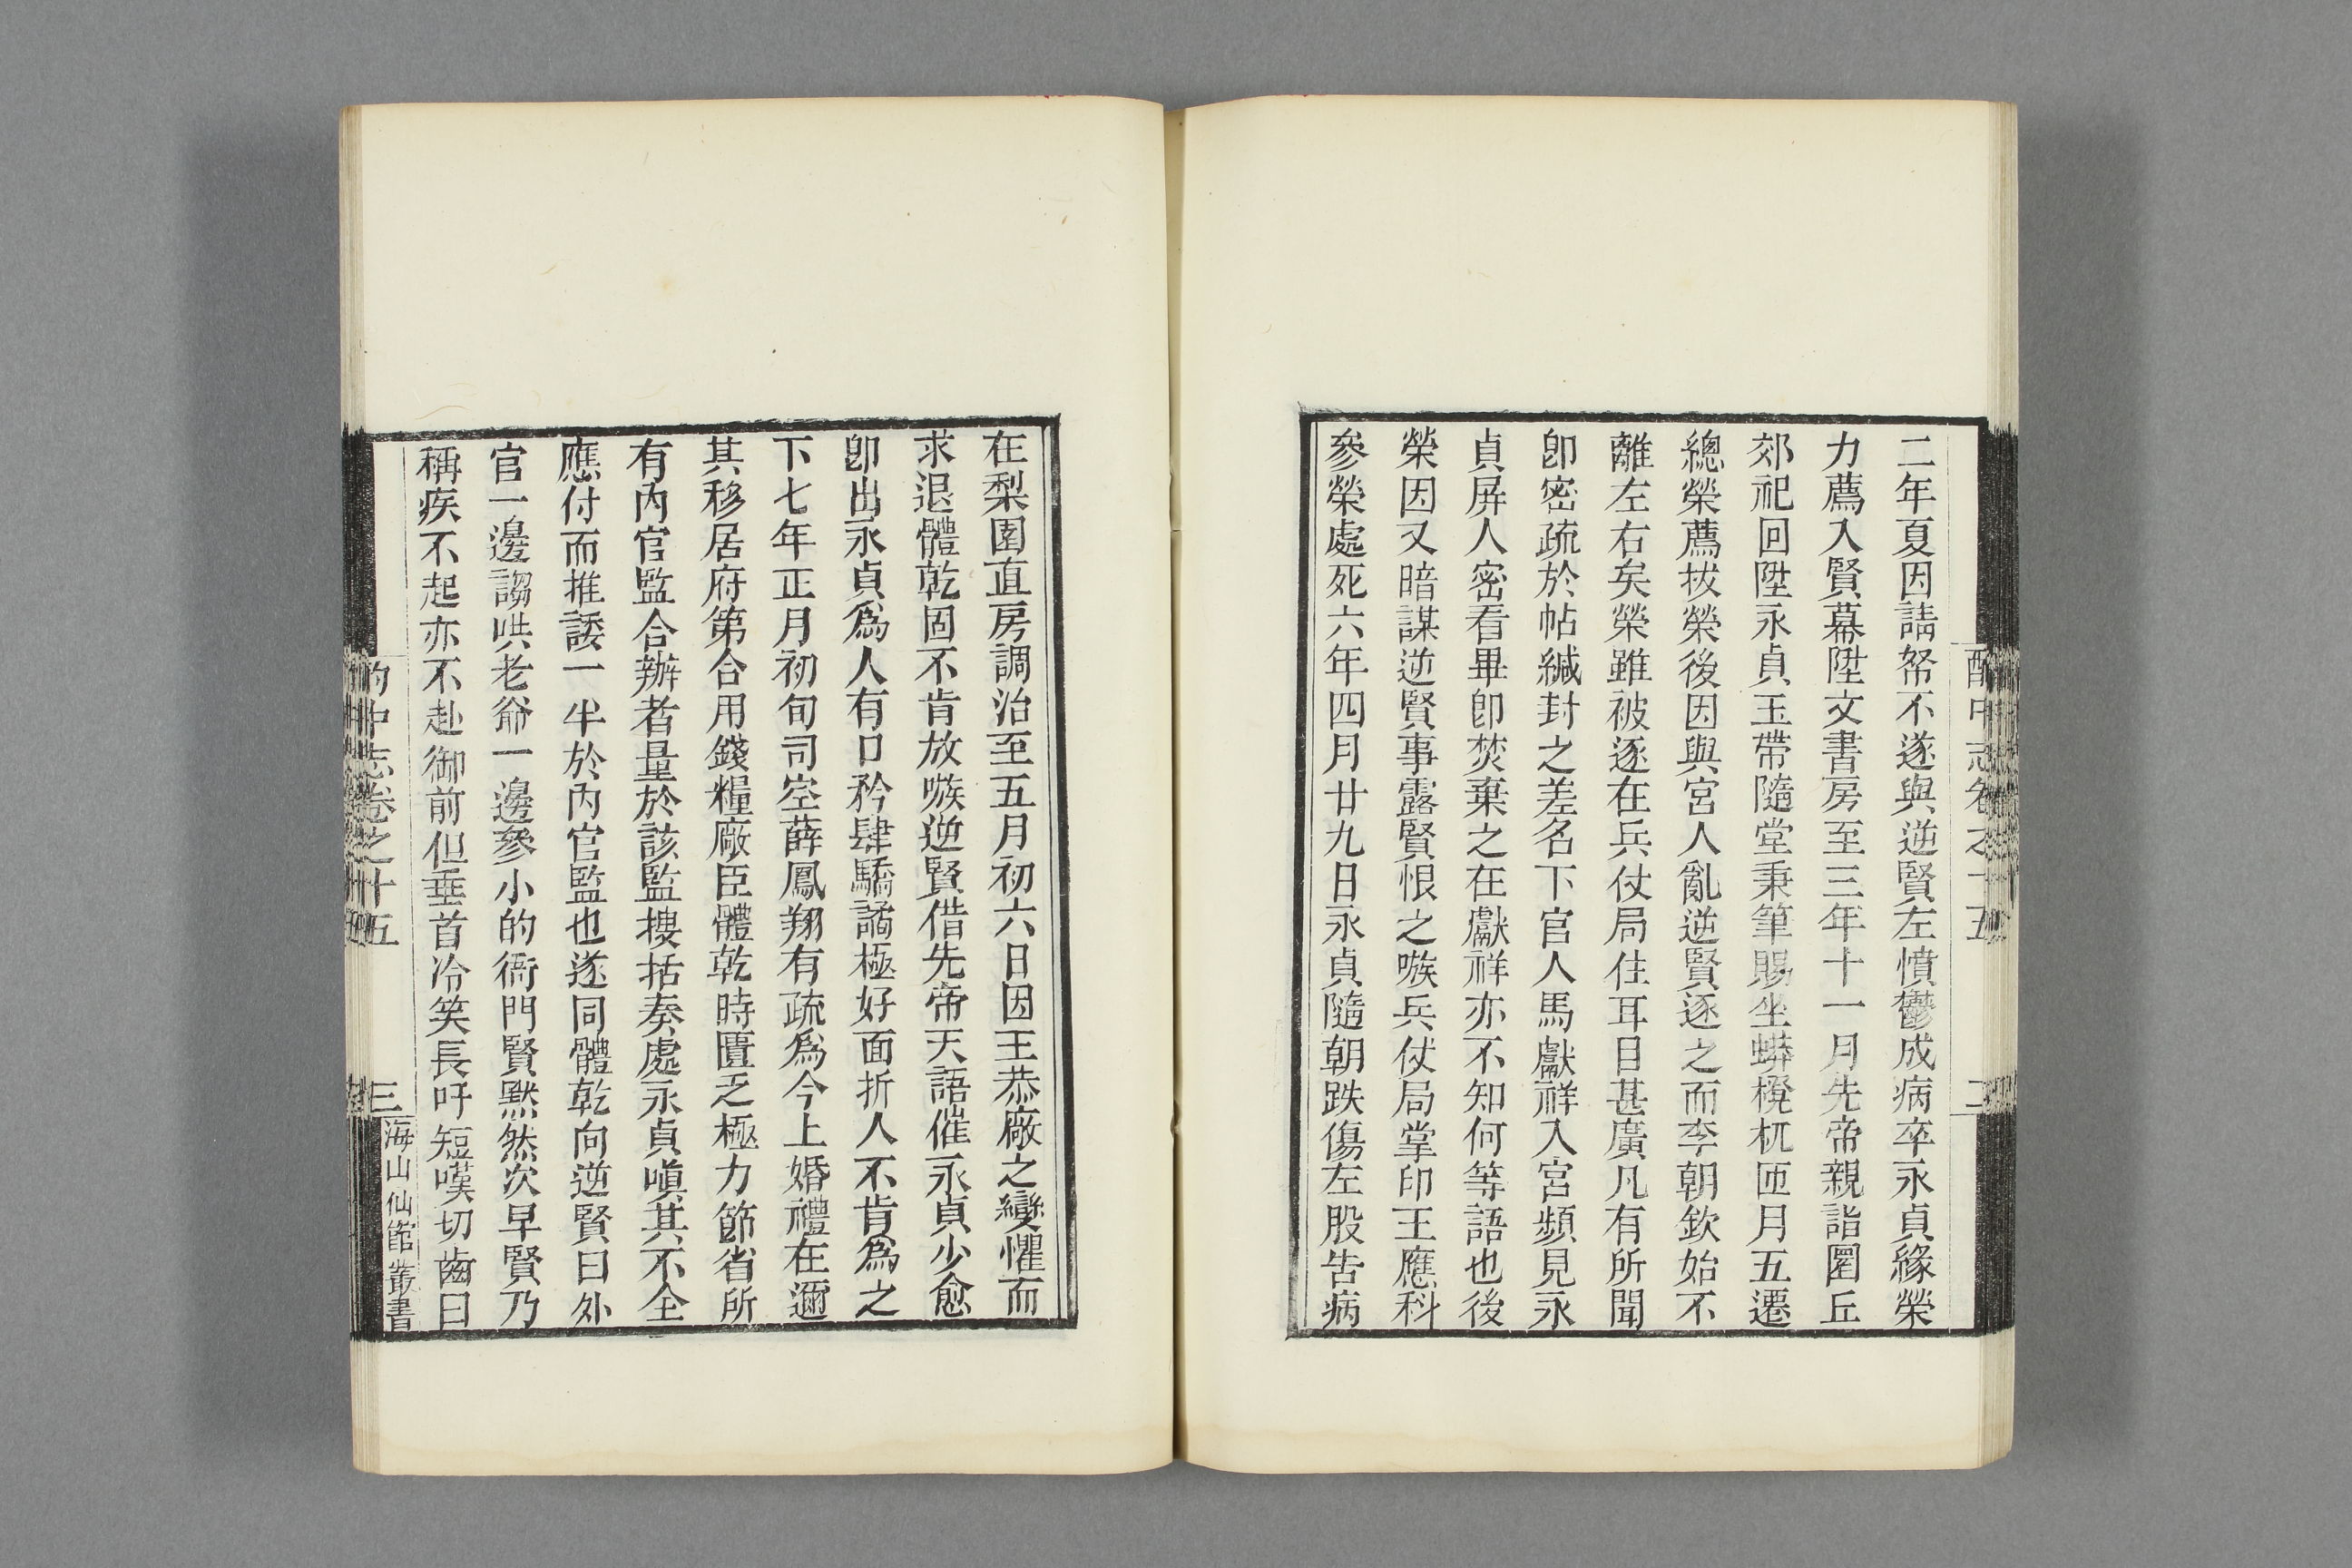 二年夏因請帑不遂與逆賢左憤鬱成病卒永貞緣榮
力薦入賢幕陞文書房至三年十一月先帝親詣圜丘
郊祀回陞永貞玉帶隨堂秉筆賜坐蟒櫈杌匝月五遷
總榮薦拔榮後因與宮人亂逆賢逐之而李朝欽始不
離左右矣榮雖被逐在兵仗局住耳目甚廣凡有所聞
卽密疏於帖緘封之差名下官人馬獻祥入宮頻見永
貞屏人密看畢卽焚棄之在獻祥亦不知何等語也後
榮因又暗謀逆賢事露賢恨之嗾兵仗局掌印王應科
參榮處死六年四月廿九日永貞隨朝跌傷左股告病
酌中志卷之十五
二
在梨園直房調治至五月初六日因王恭廠之變懼而
求退體乾固不肯放嗾逆賢借先帝天語催永貞少愈
卽出永貞爲人有口矜肆驕譎極好面折人不肯爲之
下七年正月初旬司空薛鳳翔有疏爲今上婚禮在邇
其移居府第合用錢糧廠臣體乾時匱乏極力節省所
有內官監合辦者量於該監摟括奏處永貞嗔其不全
應付而推諉一半於內官監也遂同體乾向逆賢曰外
官一邊謅哄老爺一邊參小的衙門賢默然次早賢乃
稱疾不起亦不赴御前但垂首冷笑長吁短嘆切齒曰
酌中志卷之十五
三
海山仙館叢書